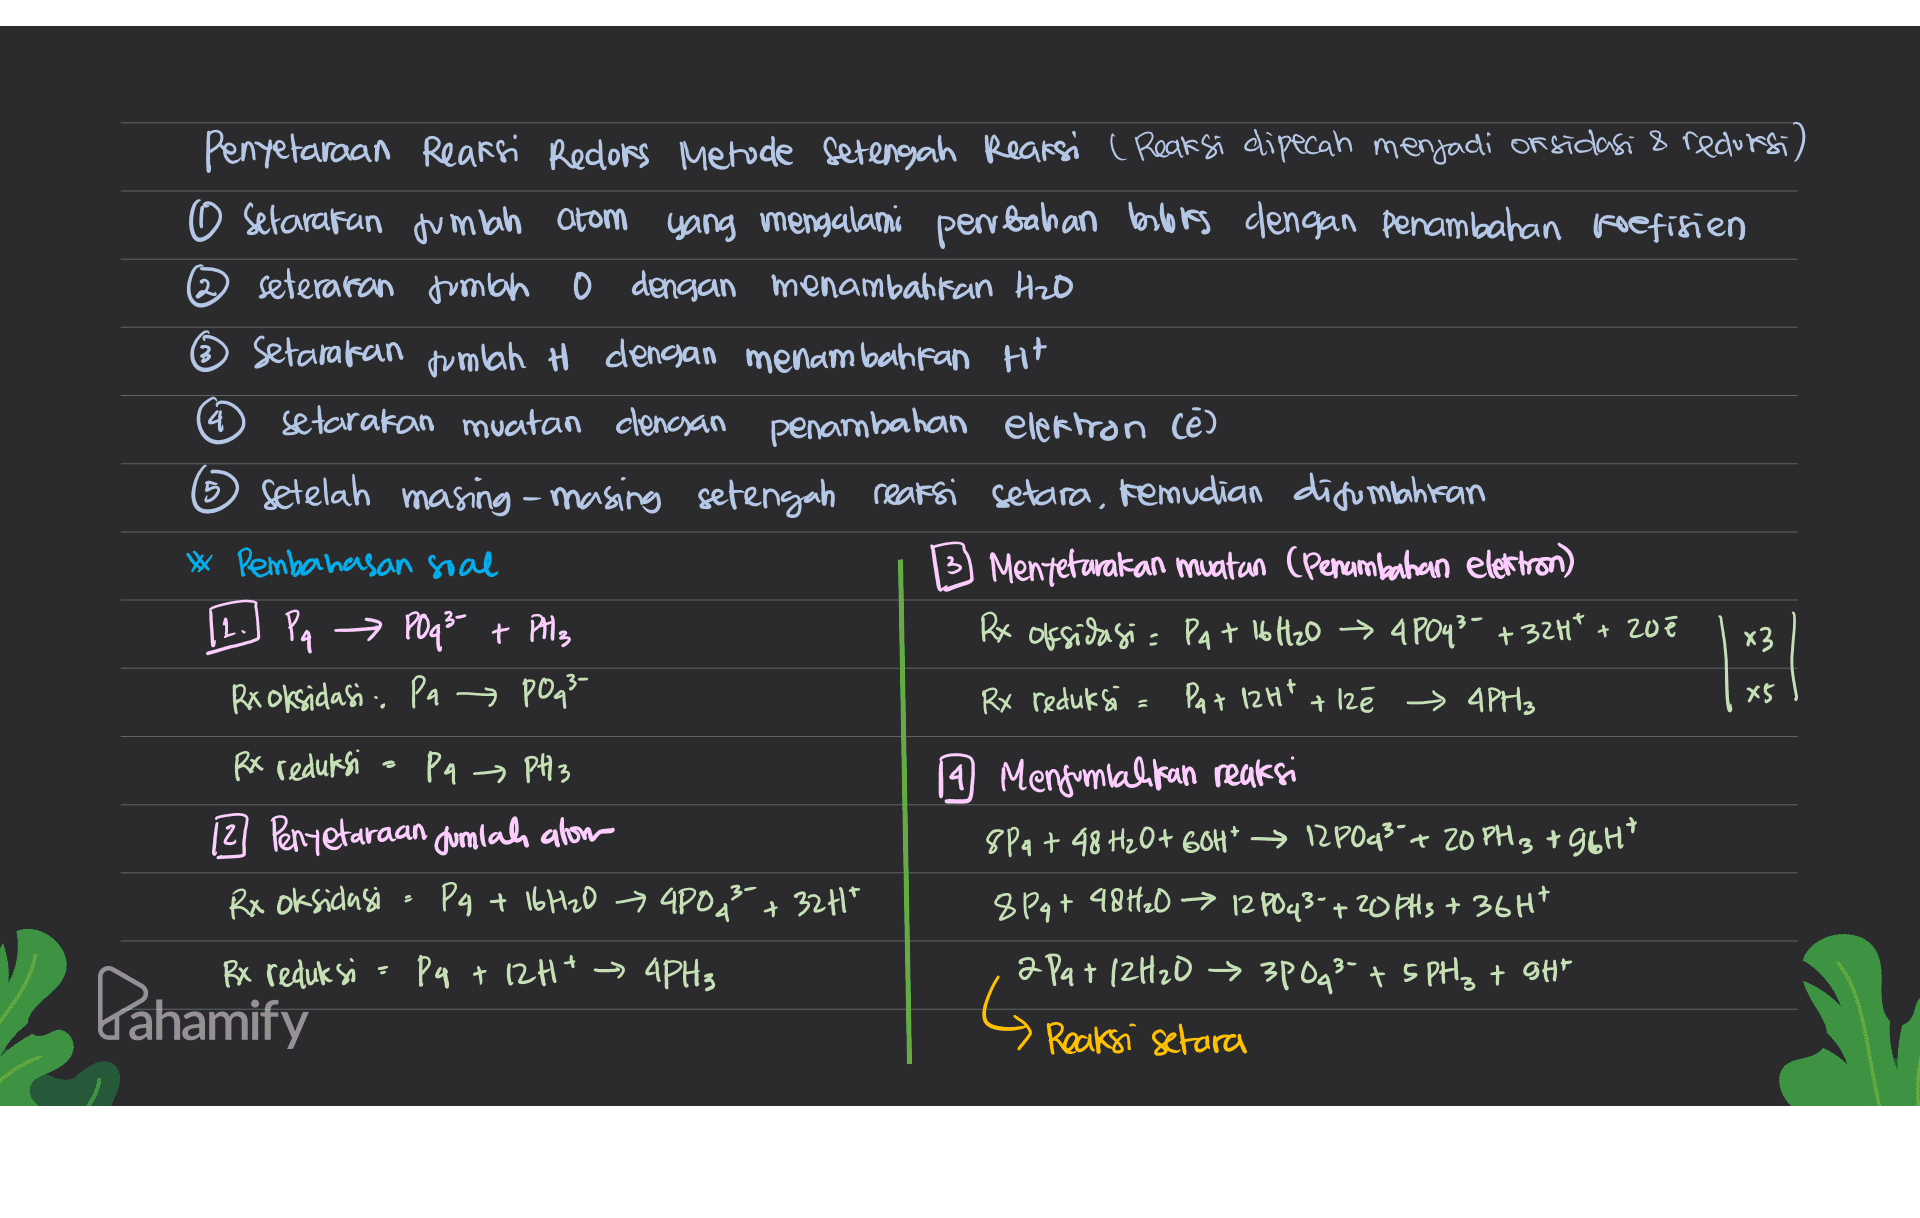 Penyetaraan Reaksi Redoks Metode Setengah Reaksi (Reaksi dipecah menjadi oksidasi & reduksi)
① Setarakan jumlah atom yang mengalami perubahan biloks dengan Penambahan koefisien
② seterakan jumlah O dengan menambahkan H₂O
③ Setarakan jumlah H dengan menambahkan H⁺
④ setarakan muatan dengan penambahan elektron (ē)
⑤ Setelah masing-masing setengah reaksi setara, kemudian dijumlahkan
※ Pembahasan soal
1. P₄ → PO₄³⁻ + PH₃
Rx oksidasi : P₄ → PO₄³⁻
Rx reduksi = P₄ → PH₃
2 Penyetaraan jumlah atom
Rx oksidasi = P₄ + 16H₂O → 4PO₄³⁻ + 32H⁺
Rx reduksi = P₄ + 12H⁺ → 4PH₃
3 Menyetarakan muatan (Penambahan elektron)
Rx oksidasi = P₄ + 16H₂O → 4PO₄³⁻ + 32H⁺ + 20ē | x3 |
Rx reduksi = P₄ + 12H⁺ + 12ē → 4PH₃ | x5 |
4 Menjumlahkan reaksi
8P₄ + 48H₂O + 60H⁺ → 12PO₄³⁻ + 20PH₃ + 96H⁺
8P₄ + 48H₂O → 12PO₄³⁻ + 20PH₃ + 36H⁺
2P₄ + 12H₂O → 3PO₄³⁻ + 5PH₃ + 9H⁺
Reaksi setara
Pahamify